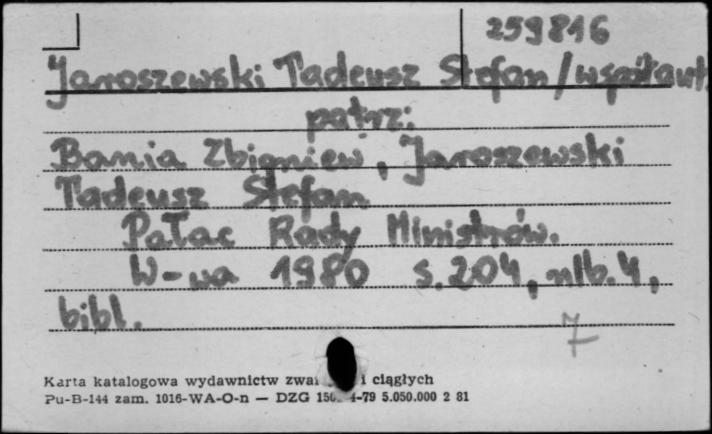 259816
Jaroszewski Tadeusz Stefan/współaut.
patrz:
Bania Zbigniew, Jaroszewski
Tadeusz Stefan
Pałac Rady Ministrów.
W-wa 1980 s.204, nlb.4,
bibl.
7
Karta katalogowa wydawnictw i ciągłych
Pu-B-144 zam. 1016-WA-O-n — DZG -79 5.050.000 2 81